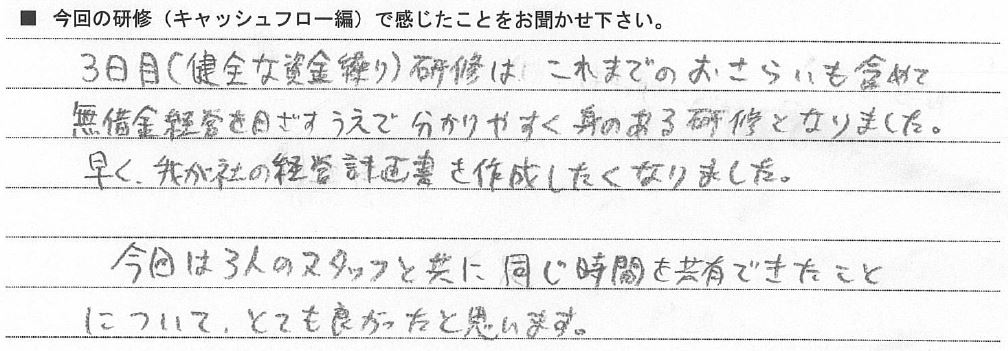 ■ 今回の研修（キャッシュフロー編）で感じたことをお聞かせ下さい。
3日目(健全な資金繰り)研修は これまでのおさらいも含めて
無借金経営を目ざすうえで 分かりやすく 身のある研修となりました。
早く、我が社の経営計画書を作成したくなりました。
今回は3人のスタッフと共に 同じ時間を共有できたこと
について、とても良かったと思います。